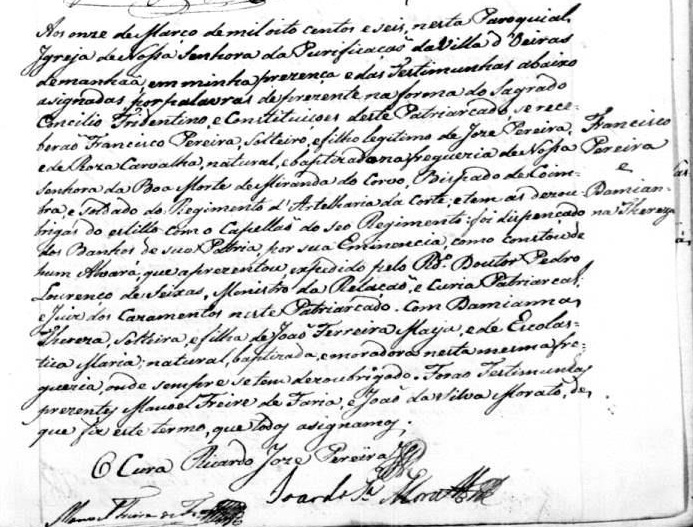 Aos onze de Março de mil oito centos e seis, nesta Paroquial
Igreja de Nossa Senhora da Purificaçaõ da Villa d'Oeiras
de manhaã, em minha prezença e das Testimunhas abaixo
asignadas, por palavras de prezente na forma do Sagrado
Concilio Tridentino, e Constituiçoes deste Patriarcado, se rece-
beraõ Francisco Pereira, Solteiro, e filho legitimo de Joze Pereira,
e de Roza Carvalha, natural, e baptizado na freguezia de Nossa
Senhora da Boa Morte de Miranda do Corvo, Bispado de Coim-
bra, e Soldado do Regimento d'Artelharia da Corte, e tem as dezou-
brigas do estillo com o Capellaõ do seo Regimento: foi dispençado
dos Banhos de sua Patria, por sua Eminencia, como constou de
hum Alvará, que aprezentou, expedido pelo Rdo. Doutor Pedro
Lourenço de Seixas, Ministro da Relaçaõ, e Curia Patriarcal,
e Juiz dos Cazamentos neste Patriarcado. Com Damianna
Thereza, Solteira, e filha de Joaõ Ferreira Maya, e de Escolas-
tica Maria; natural, baptizada, e moradora nesta mesma fre-
guezia, onde sempre se tem dezoubrigado. Foraõ Testimunhas
prezentes Manoel Freire de Faria, e Joaõ da Silva Morato, de
que fiz este termo, que todos asignamos.
O Cura Ricardo Joze Pereira
Joaõ da Sa. Morato
Manoel Freire de Faria
Francisco
Pereira
e
Damian-
na Thereza